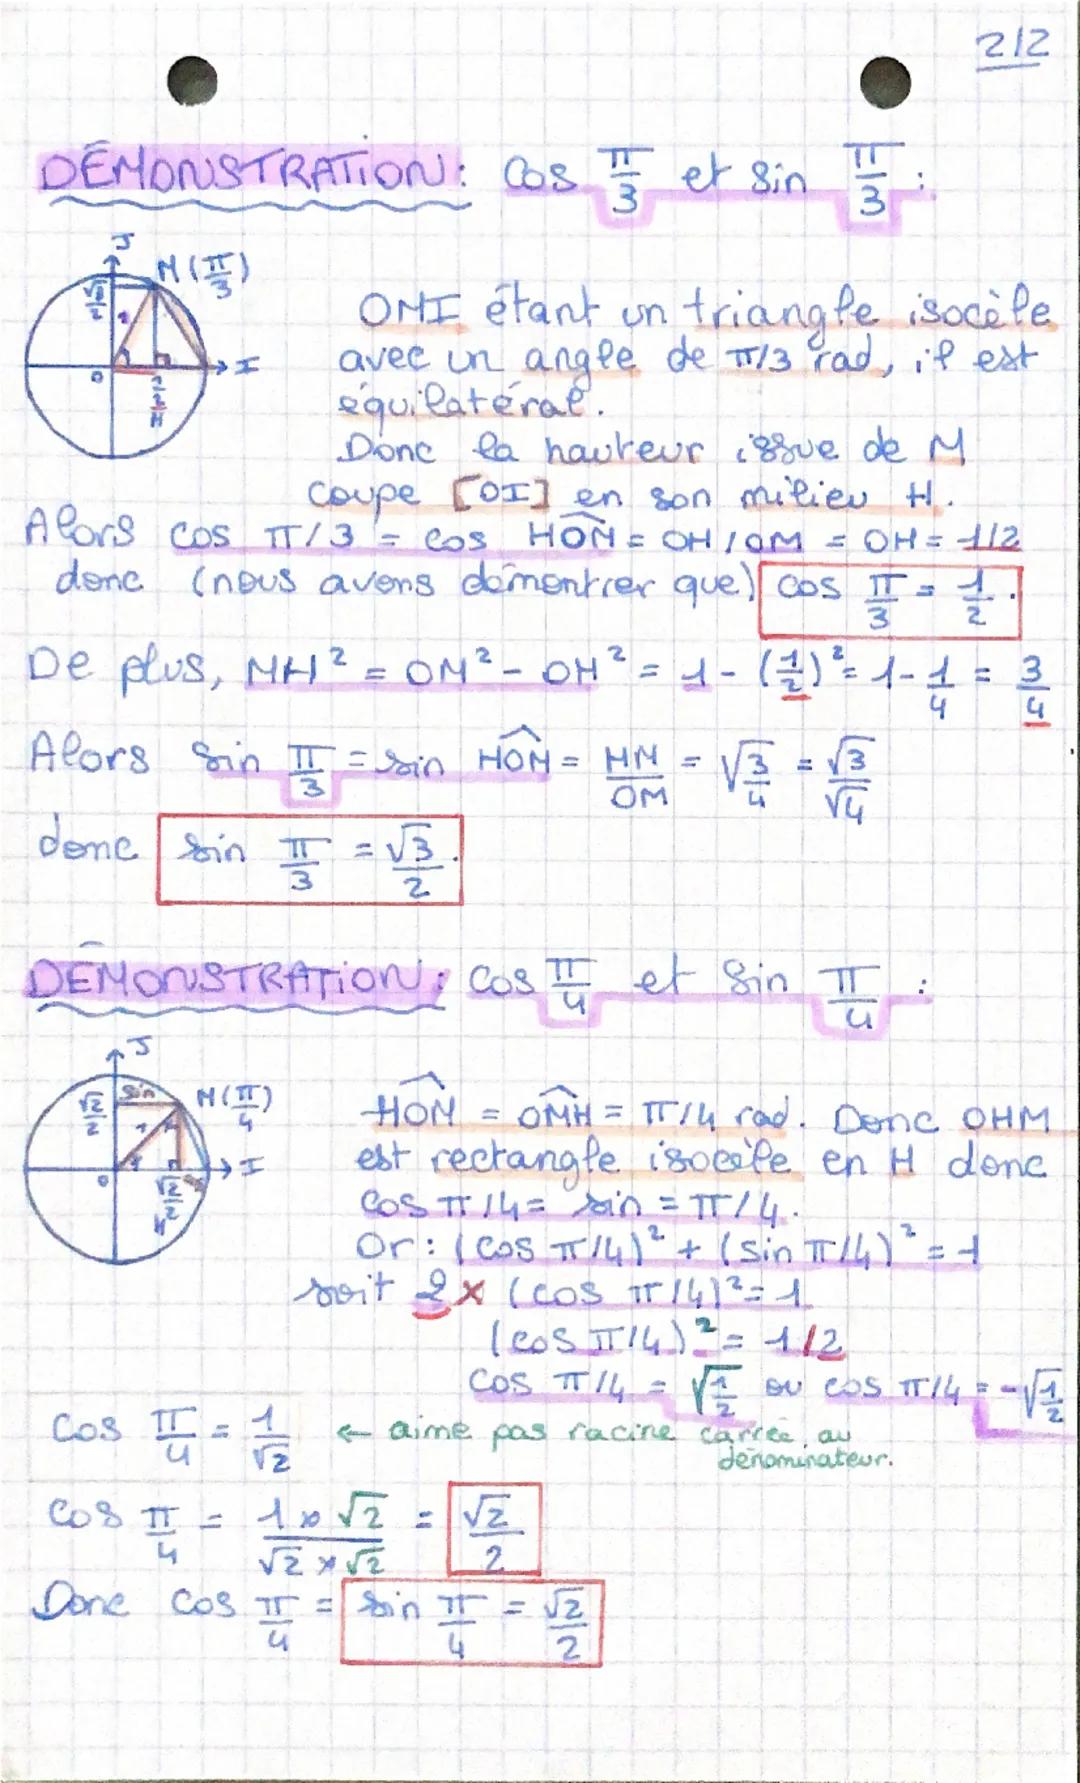 2/2
DÉMONSTRATION: cos π/3 et sin π/3 :
J
M(π/3)
√3/2
1
O
I
1/2
H
OMI étant un triangle isocèle
avec un angle de π/3 rad, il est
équilatéral.
Donc la hauteur issue de M
coupe [OI] en son milieu H.
Alors cos π/3 = cos HOM = OH/OM = OH = 1/2
donc (nous avons démontrer que) cos π/3 = 1/2.
De plus, MH² = OM² - OH² = 1 - (1/2)² = 1 - 1/4 = 3/4
Alors sin π/3 = sin HOM = HM/OM = √3/4 = √3/√4
donc sin π/3 = √3/2.
DÉMONSTRATION: cos π/4 et sin π/4 :
J
sin
M(π/4)
√2/2
1
O
I
√2/2
H
HOM = OMH = π/4 rad. Donc OHM
est rectangle isocèle en H donc
cos π/4 = sin = π/4.
Or : (cos π/4)² + (sin π/4)² = 1
soit 2 × (cos π/4)² = 1
(cos π/4)² = 1/2
cos π/4 = √1/2 ou cos π/4 = -√1/2
cos π/4 = 1/√2 ← aime pas racine carrée au
dénominateur.
cos π/4 = 1×√2/√2×√2 = √2/2
Donc cos π/4 = sin π/4 = √2/2